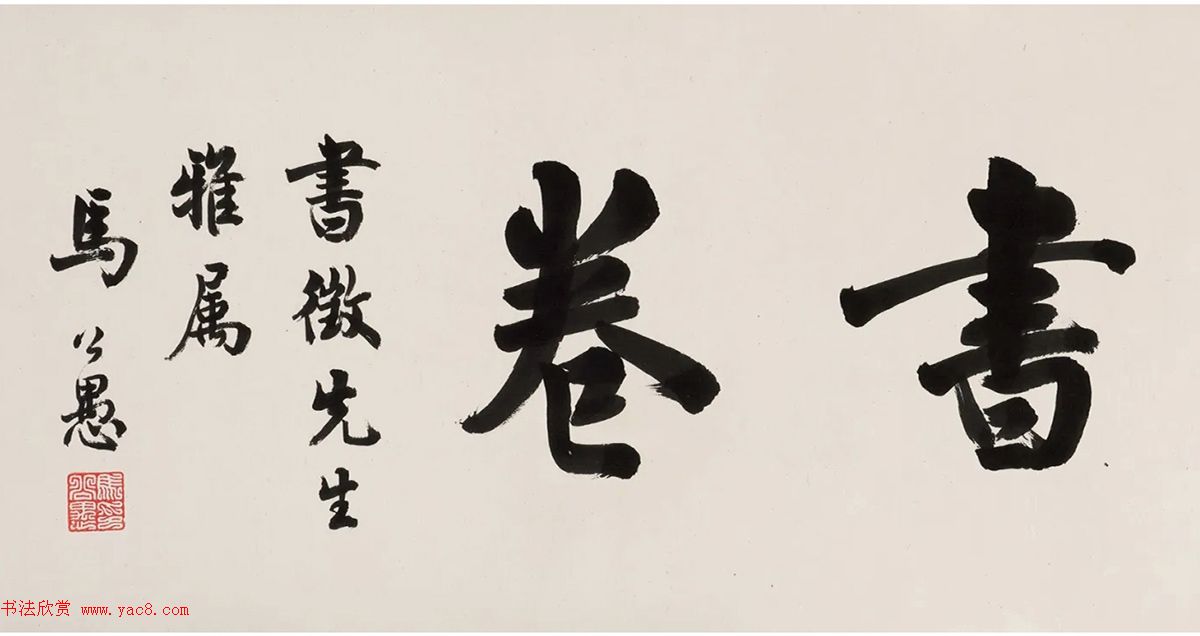 書卷
書徵先生
雅属
馬公愚
馬公愚印
书法欣赏 www.yac8.com